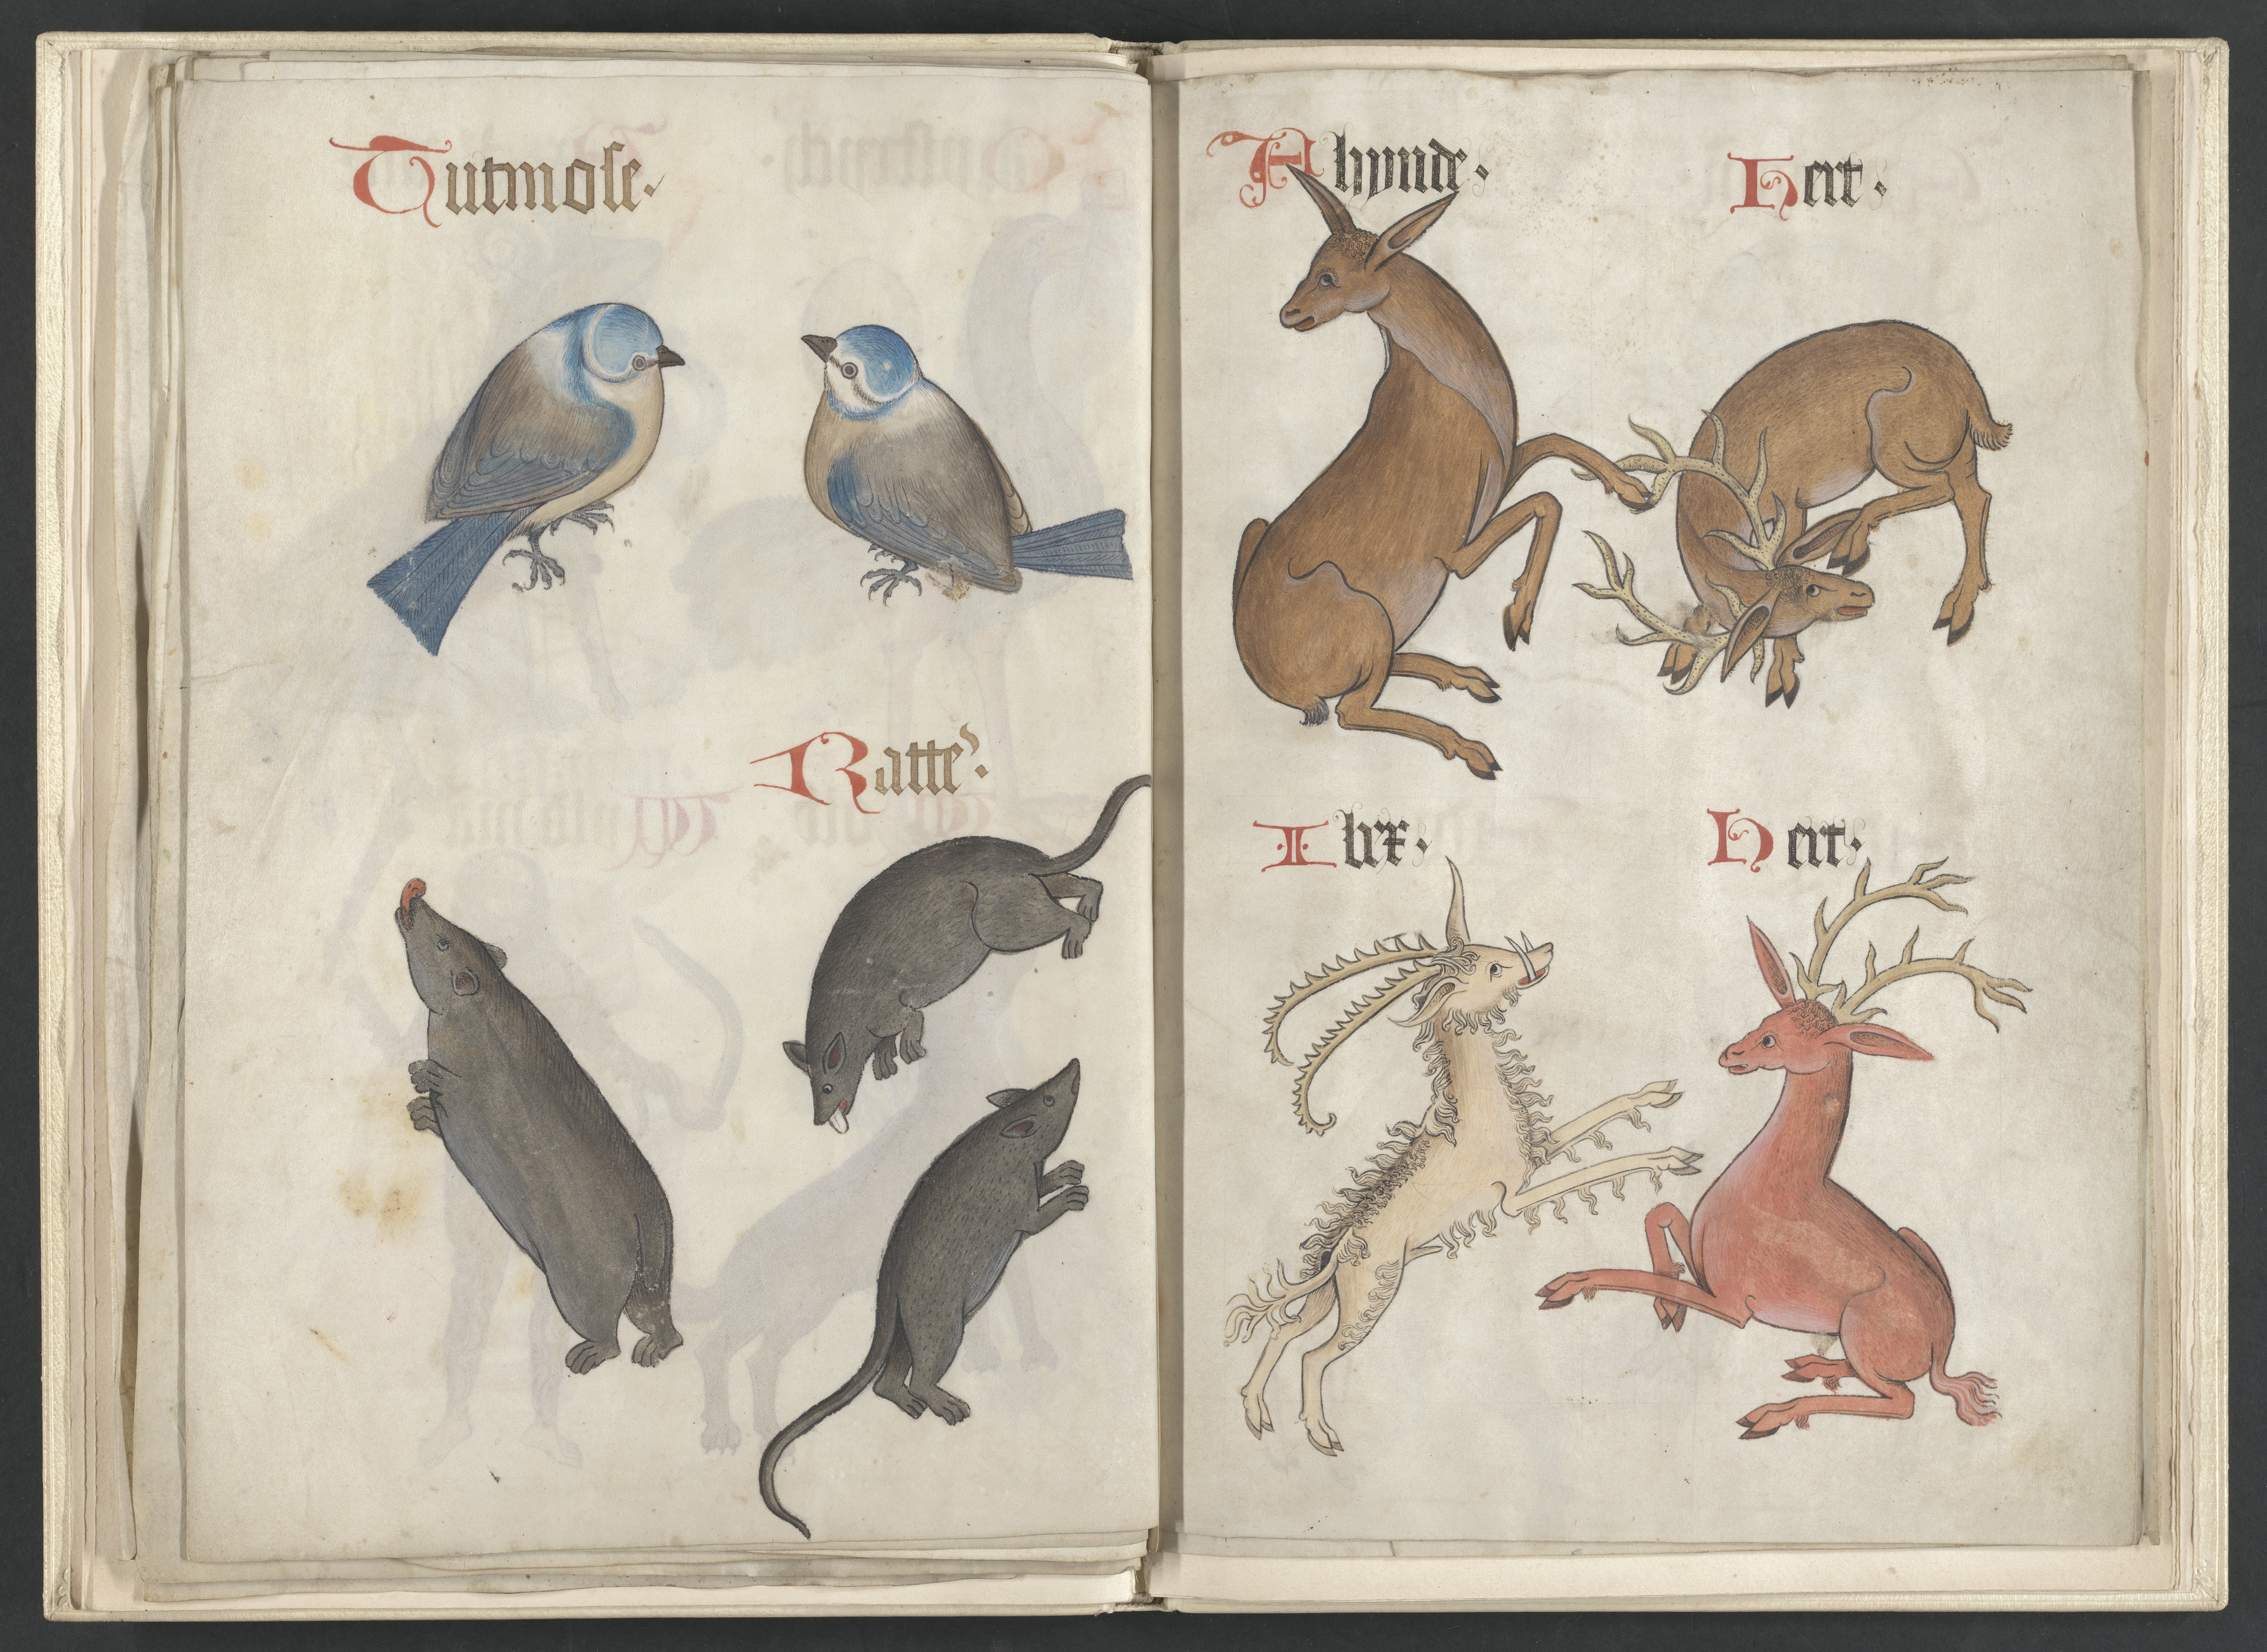 Tutmose.
Ratte.
A hynde.
Hert.
Ibex.
Hert.